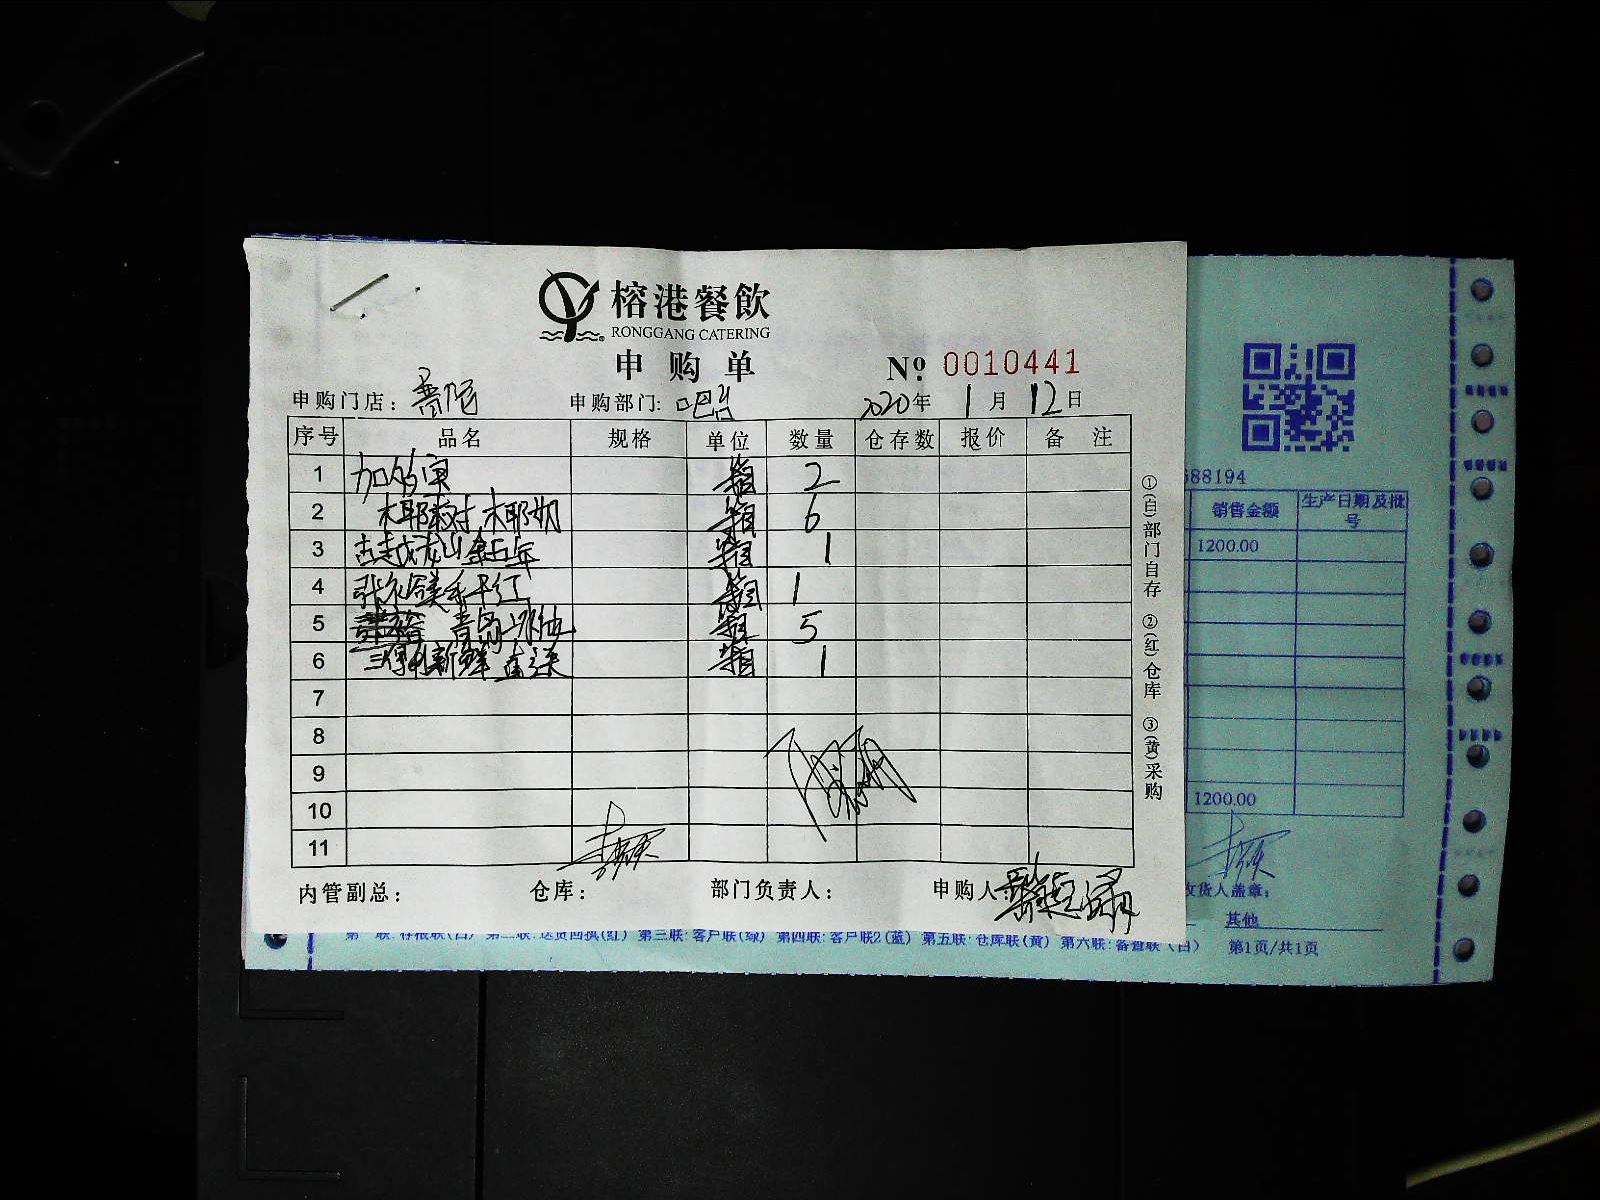 榕港餐飲
RONGGANG CATERING
申购单
№ 0010441
申购门店: 申购部门: 吧台 2020年1月12日
序号 品名 规格 单位 数量 仓存数 报价 备注
1 加多宝 箱 2
2 箱 6
3 古越龙山金五年 箱 1
4 箱 1
5 箱 5
6 三得利新鲜直送 箱 1
7
8
9
10
11
内管副总: 仓库: 部门负责人: 申购人:
①(白)部门自存 ②(红)仓库 ③(黄)采购
688194
销售金额 生产日期及批号
1200.00
1200.00
收货人盖章:
其他
第三联:客户联(绿) 第四联:客户联2(蓝) 第五联:仓库联(黄) 第六联:备查联(白) 第1页/共1页